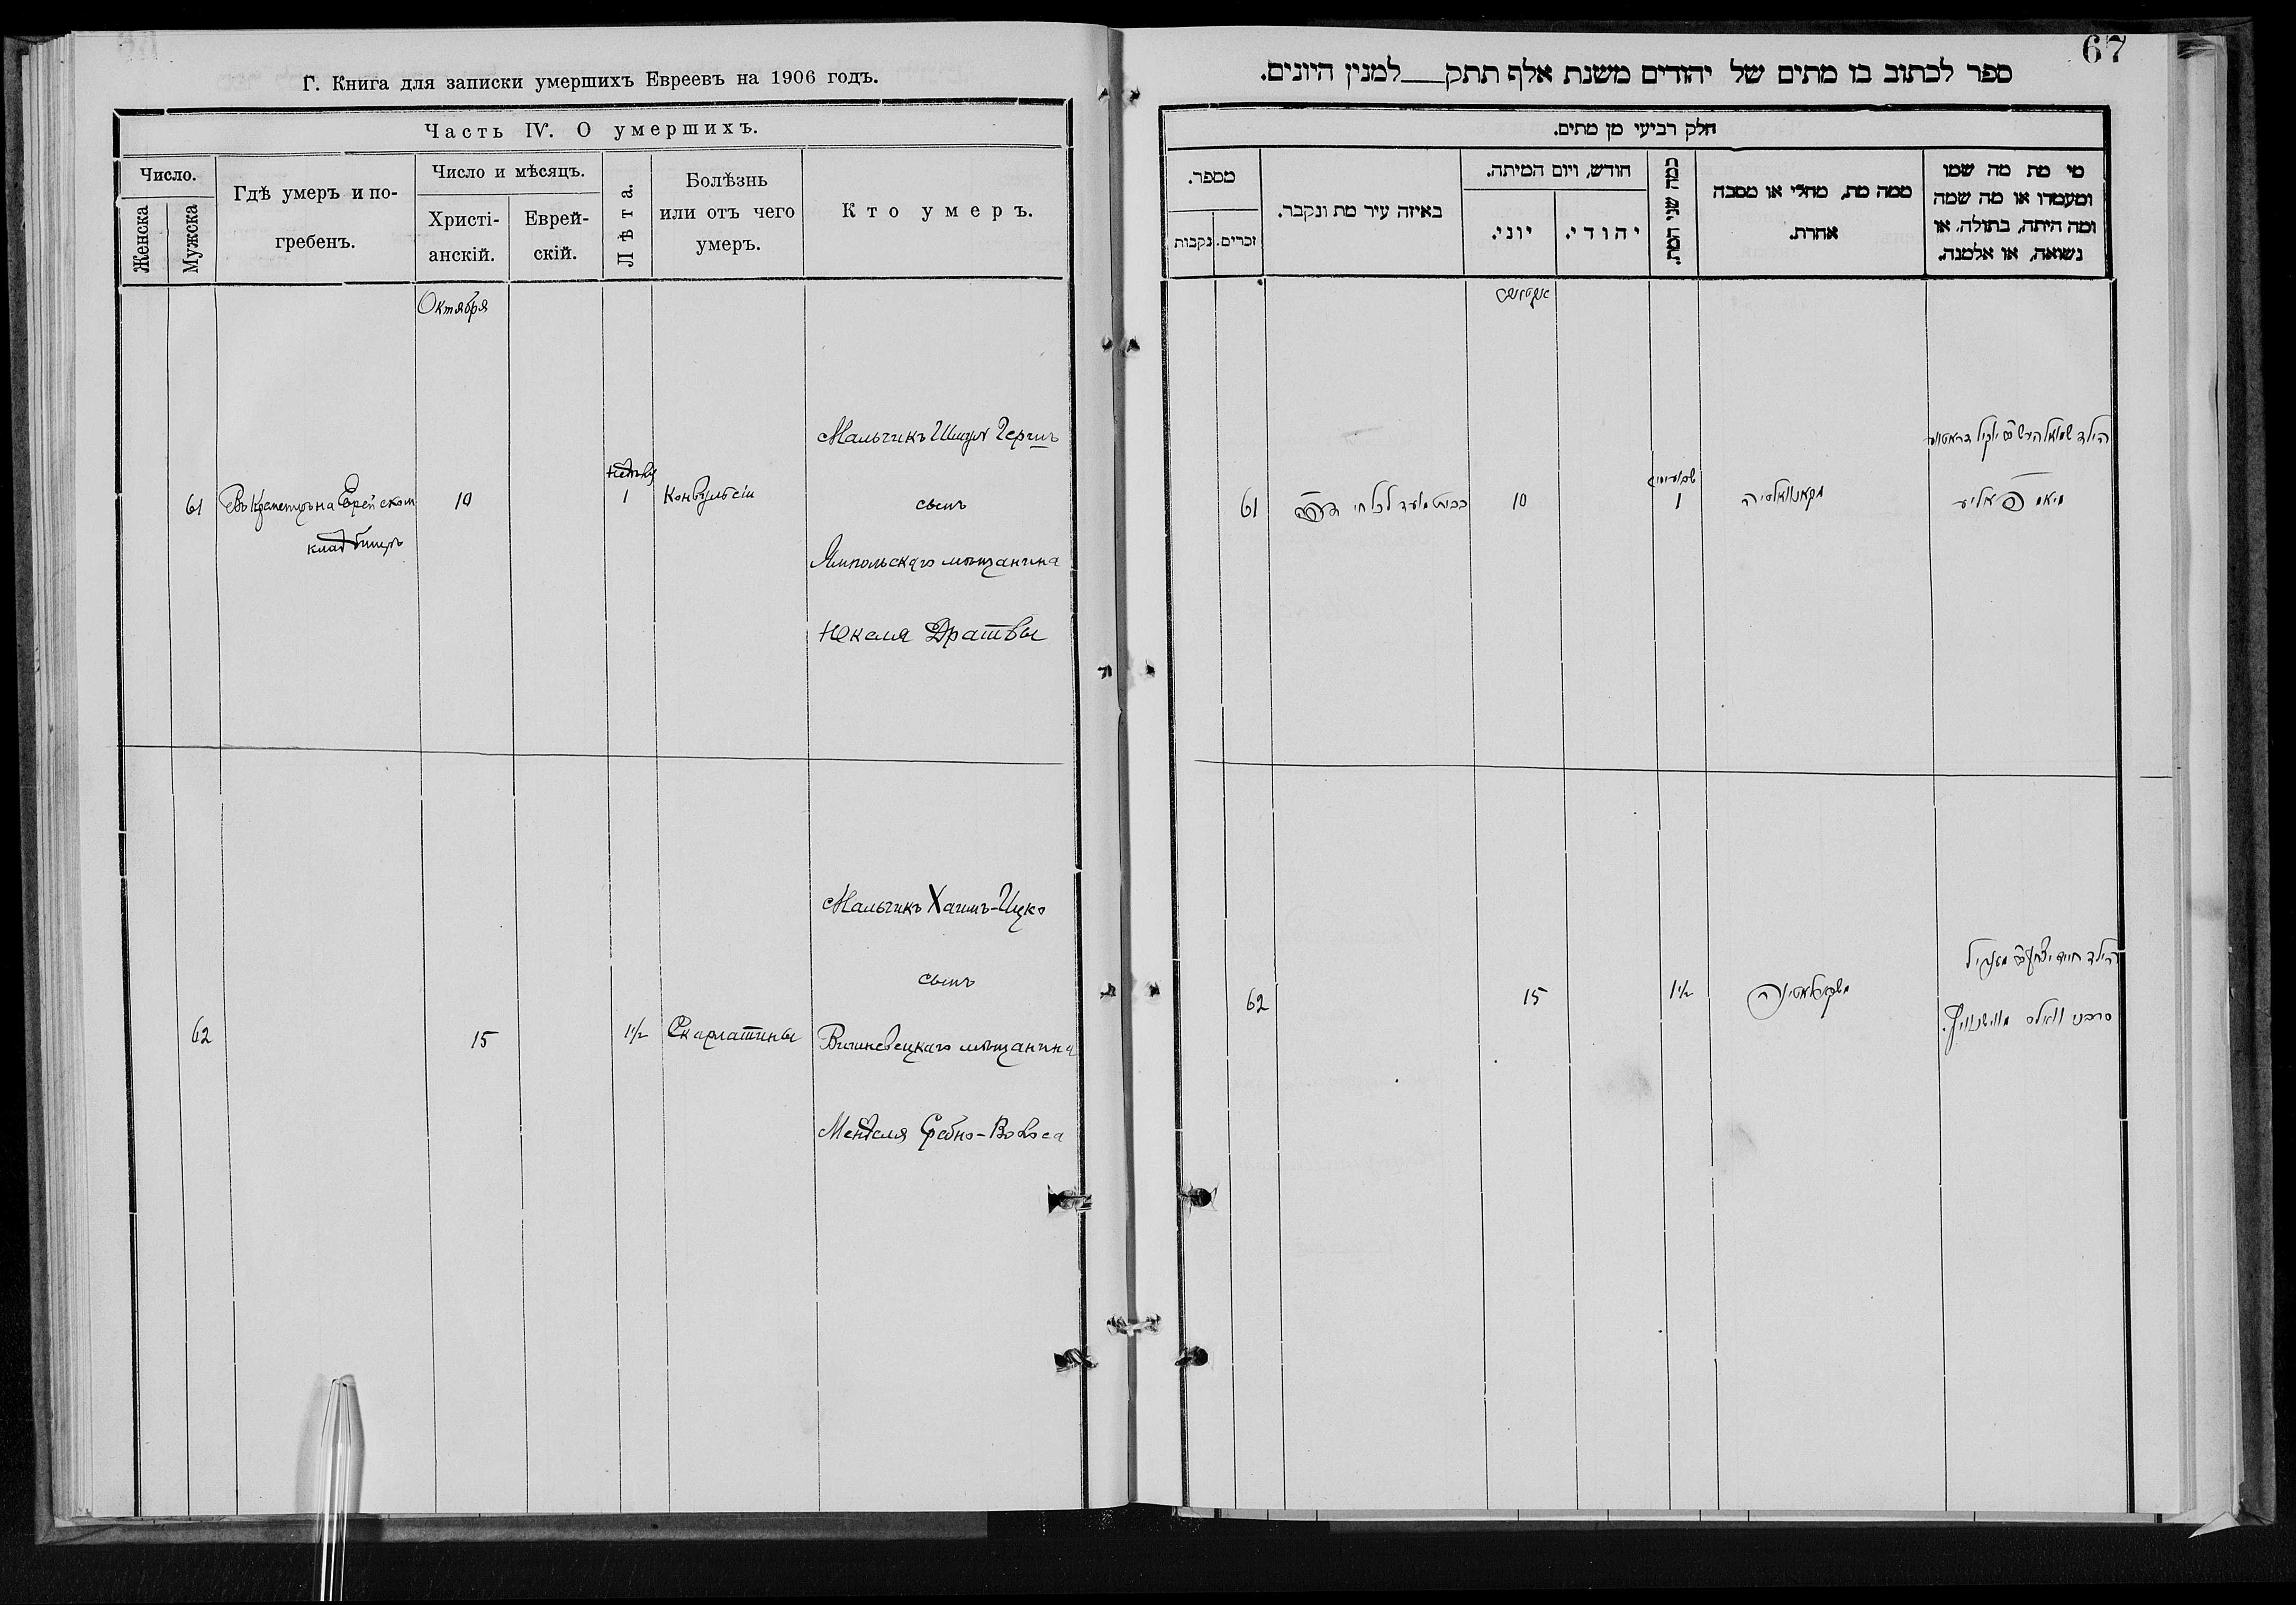 Г. Книга для записки умершихъ Евреевъ на 1906 годъ.
Часть IV. О умершихъ.
Число.
Женска
Мужска
Гдѣ умеръ и по-
гребенъ.
Число и мѣсяцъ.
Христі-
анскій.
Еврей-
скій.
Лѣта.
Болѣзнь
или отъ чего
умеръ.
Кто умеръ.
Октября
61
Въ Кременцѣ на Еврейском
кладбищѣ
10
1
Конвульсіи
Мальчикъ Шмуль Гершъ
сынъ
Ямпольскаго мѣщанина
Юкеля Дратвы
62
15
1½
Скарлатины
Мальчикъ Хаимъ-Ицко
сынъ
Вишневецкаго мѣщанина
Менделя
67
ספר לכתוב בו מתים של יהודים משנת אלף תתק למנין היונים.
חלק רביעי מן מתים.
מספר.
נקבות
זכרים.
באיזה עיר מת ונקבר.
חודש, ויום המיתה.
יוני.
יהודי.
כמה שני המת.
ממה מת, מחלי או מסבה
אחרת.
מי מת מה שמו
ומעמדו או מה שמה
ומה היתה, בתולה, או
נשואה, או אלמנה.
61
10
1
הילד שמואל הירש
62
15
1½
הילד חיים יצחק